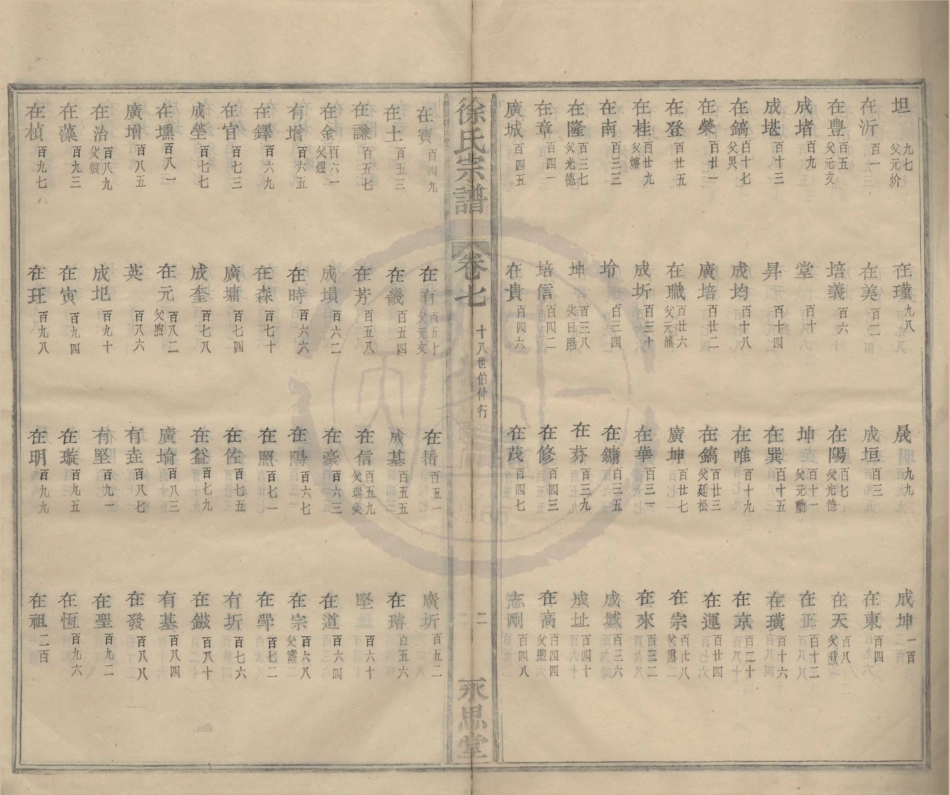 坦 九七 父元价 在瑾 九八 晟 九九 成坤 一百
在沂 百一 在美 百二 成垣 百三 在東 百四
在豐 百五 父元文 培義 百六 在陽 百七 父光德 在天 百八 父燾
成堵 百九 堂 百十 坤 百十一 父元勳 在正 百十二
成堪 百十三 昇 百十四 在巽 百十五 在璜 百十六
在鎬 百十七 父炅 成均 百十八 在唯 百十九 在章 百二十
在榮 百廿一 廣培 百廿二 在鎬 百廿三 父廷松 在運 百廿四
在登 百廿五 在職 百廿六 父元 廣坤 百廿七 在宗 百廿八 父
在桂 百廿九 父 成圻 百三十 在華 百三一 在來 百三二
在南 百三三 百三四 在鏞 百三五 成城 百三六
在隆 百三七 父光德 坤 百三八 父日熙 在芬 百三九 成址 百四十
在章 百四一 培信 百四二 在修 百四三 在高 百四四 父煦
廣城 百四五 在貴 百四六 在茂 百四七 志剛 百四八
徐氏宗譜 卷七 十八世伯仲行 二 永思堂
在寶 百四九 在有 百五十 父元文 在哲 百五一 廣圻 百五二
在土 百五三 在畿 百五四 成基 百五五 在璿 百五六
在謙 百五七 在芳 百五八 在信 百五九 父瑞 堅 百六十
在金 百六一 父煜 成塤 百六二 在豪 百六三 在道 百六四
有增 百六五 在時 百六六 在陽 百六七 在宗 百六八 父燾
在鐸 百六九 在森 百七十 在照 百七一 在犖 百七二
在官 百七三 廣墉 百七四 在佐 百七五 有圻 百七六
成瑩 百七七 成奎 百七八 在益 百七九 在鎡 百八十
在壎 百八一 在元 百八二 父煦 廣堉 百八三 有基 百八四
廣增 百八五 英 百八六 有垚 百八七 在發 百八八
在治 百八九 父 成圯 百九十 有堅 百九一 在聖 百九二
在藻 百九三 在寅 百九四 在璇 百九五 在恆 百九六
在楨 百九七 在玨 百九八 在明 百九九 在祖 二百